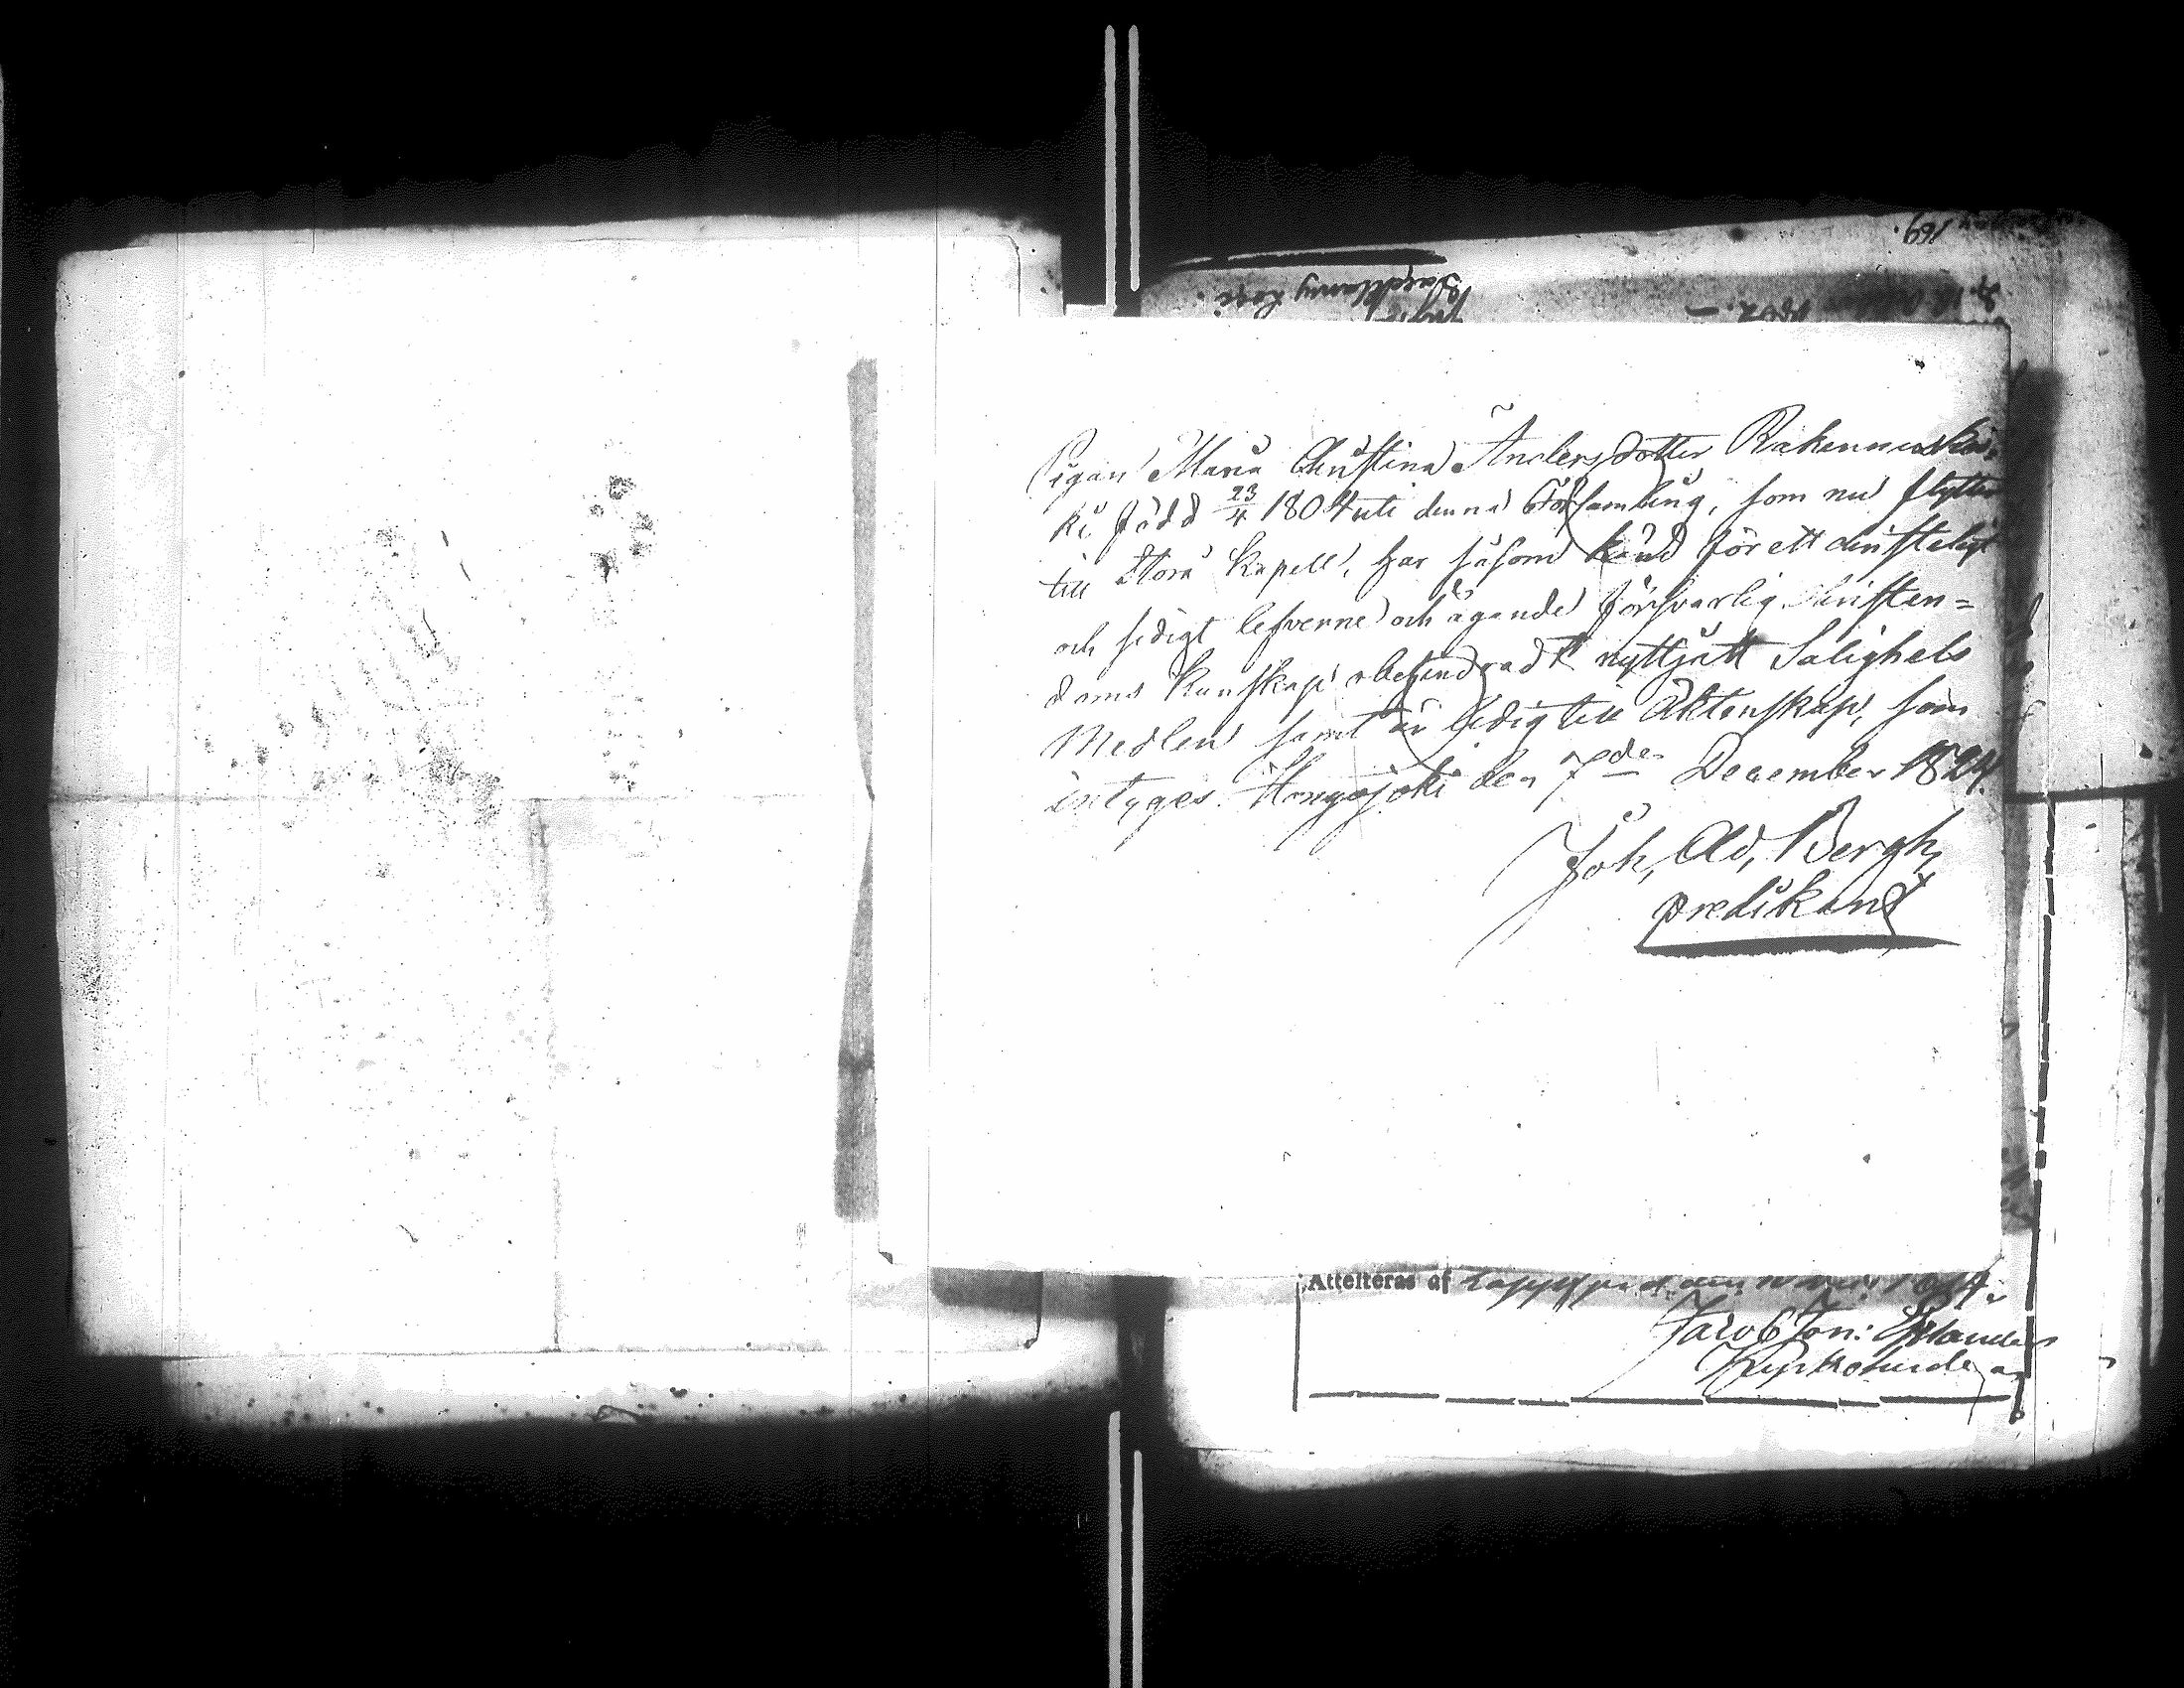 169.
1802. –
Pigan Maria Christina Andersdotter
ki född 23/4 1804 uti denna Församling, som nu flytter
till Storå Kapell, har såsom känd för ett christeligt
och sedigt lefverne och ägande försvarlig Christen=
doms kunskap obehindradt nyttjatt Salighets
Medlen samt är ledig till Äktenskap, som
intyges. Hongojoki den 7de December 1824.
Joh, Ad, Bergh,
predikant
Attesteras af
Jacob Jon:
Kyrkoherde